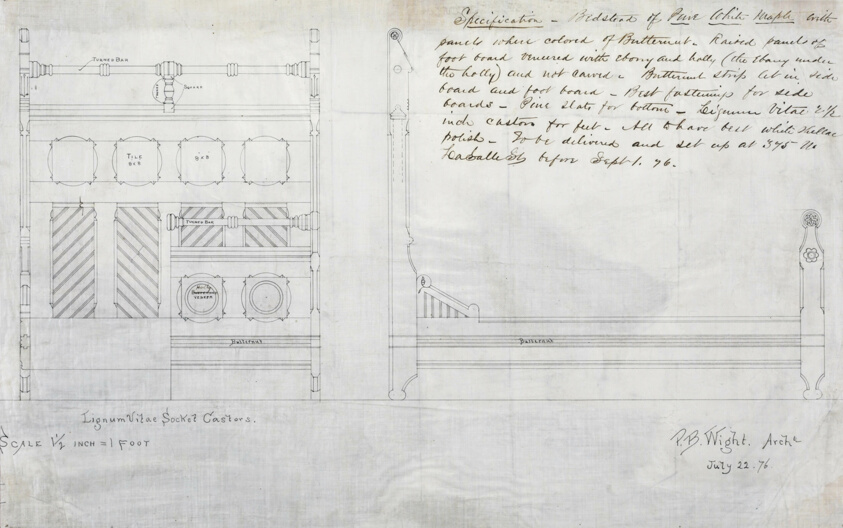 Specification - Bedstead of Pure White Maple with
panels where colored of Butternut. Raised panels of
foot board veneered with ebony and holly (the Ebony under
the holly) and not carved - Butternut strips let in side
board and foot board - Best fastenings for side
boards - Pine slats for bottom - Lignum Vitae 2 1/2
inch castors for feet - All to have best white shellac
polish - To be delivered and set up at 375 N.
LaSalle St before Sept 1. 76.
TURNED BAR
TILE
RED
RED
TURNED BAR
Holly
VENEER
Butternut
Butternut
Lignum Vitae Socket Castors.
SCALE 1 1/2 INCH = 1 FOOT
P.B. Wight. Arch't
July 22. 76